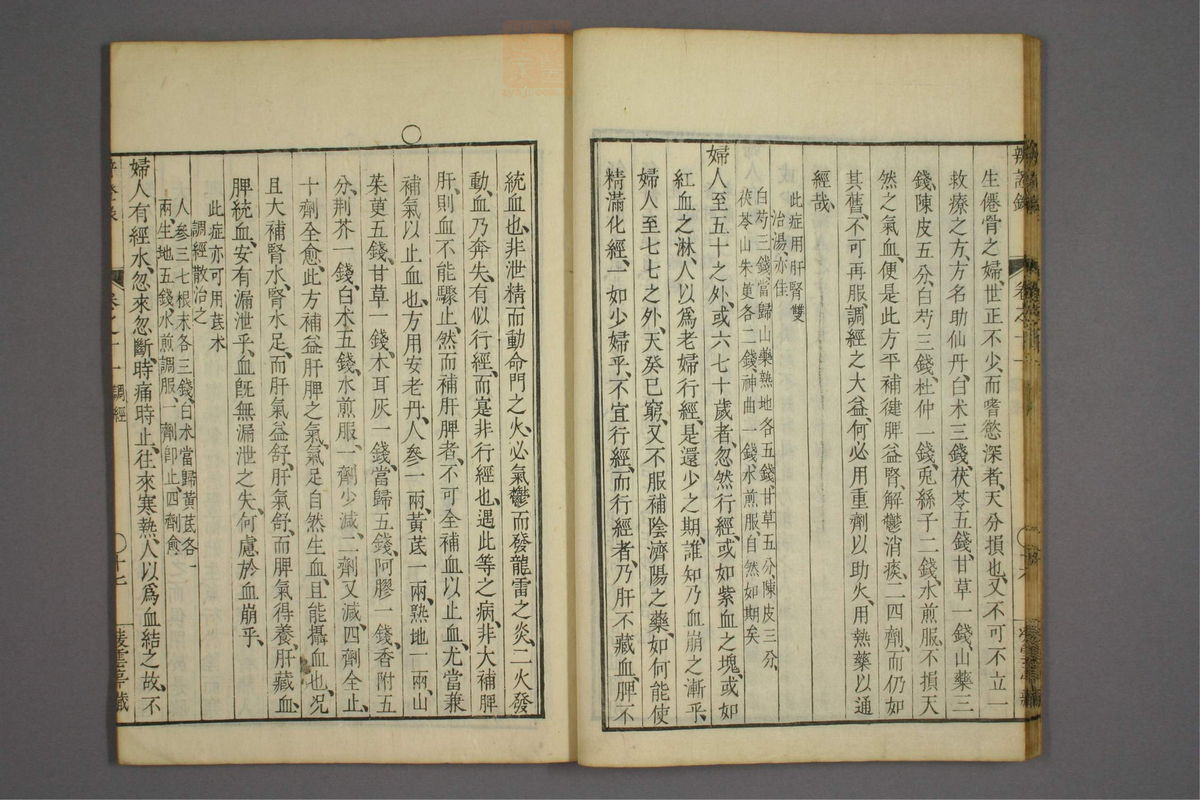 辨證錄
卷之十一
十六
生僊骨之婦、世正不少、而嗜慾深者、天分損也、又不可不立一
救療之方、方名助仙丹、白术三錢、茯苓五錢、甘草一錢、山藥三
錢、陳皮五分、白芍三錢、杜仲一錢、兎絲子二錢、水煎服、不損天
然之氣血、便是此方平補、徤脾益腎、解鬱消痰、二四劑、而仍如
其舊、不可再服、調經之大益、何必用重劑以助火、用熱藥以通
經哉、
此症用肝腎雙
治湯、亦佳
白芍三錢、當歸山藥熟地各五錢、甘草五分、陳皮三分、
茯苓山朱萸各二錢、神曲一錢、水煎服、自然如期矣
婦人至五十之外、或六七十歲者、忽然行經、或如紫血之塊、或如
紅血之淋、人以爲老婦行經、是還少之期、誰知乃血崩之漸乎、
婦人至七七之外、天癸已窮、又不服補陰濟陽之藥、如何能使
精滿化經、一如少婦乎、不宜行經、而行經者、乃肝不藏血、脾不
統血也、非泄精而動命門之火、必氣鬱而發龍雷之炎、二火發
動、血乃奔失、有似行經、而寔非行經也、遇此等之病、非大補脾
肝、則血不能驟止、然而補肝脾者、不可全補血以止血、尤當兼
〇
補氣以止血也、方用安老丹、人參一兩、黃茋一兩、熟地一兩、山
茱萸五錢、甘草一錢、木耳灰一錢、當歸五錢、阿膠一錢、香附五
分、荆芥一錢、白朮五錢、水煎服、一劑少減、二劑又減、四劑全止、
十劑全愈、此方補益肝脾之氣、氣足自然生血、且能攝血也、况
且大補腎水、腎水足、而肝氣益舒、肝氣舒、而脾氣得養、肝藏血、
脾統血、安有漏泄乎、血旣無漏泄之失、何慮於血崩乎、
此症亦可用茋术
調經散治之
人參三七根末各三錢、白术當歸黃茋各一
兩、生地五錢、水煎調服、一劑卽止、四劑愈
婦人有經水、忽來忽斷、時痛時止、往來寒熱、人以爲血結之故、不
卷之十一
調經
〇十七